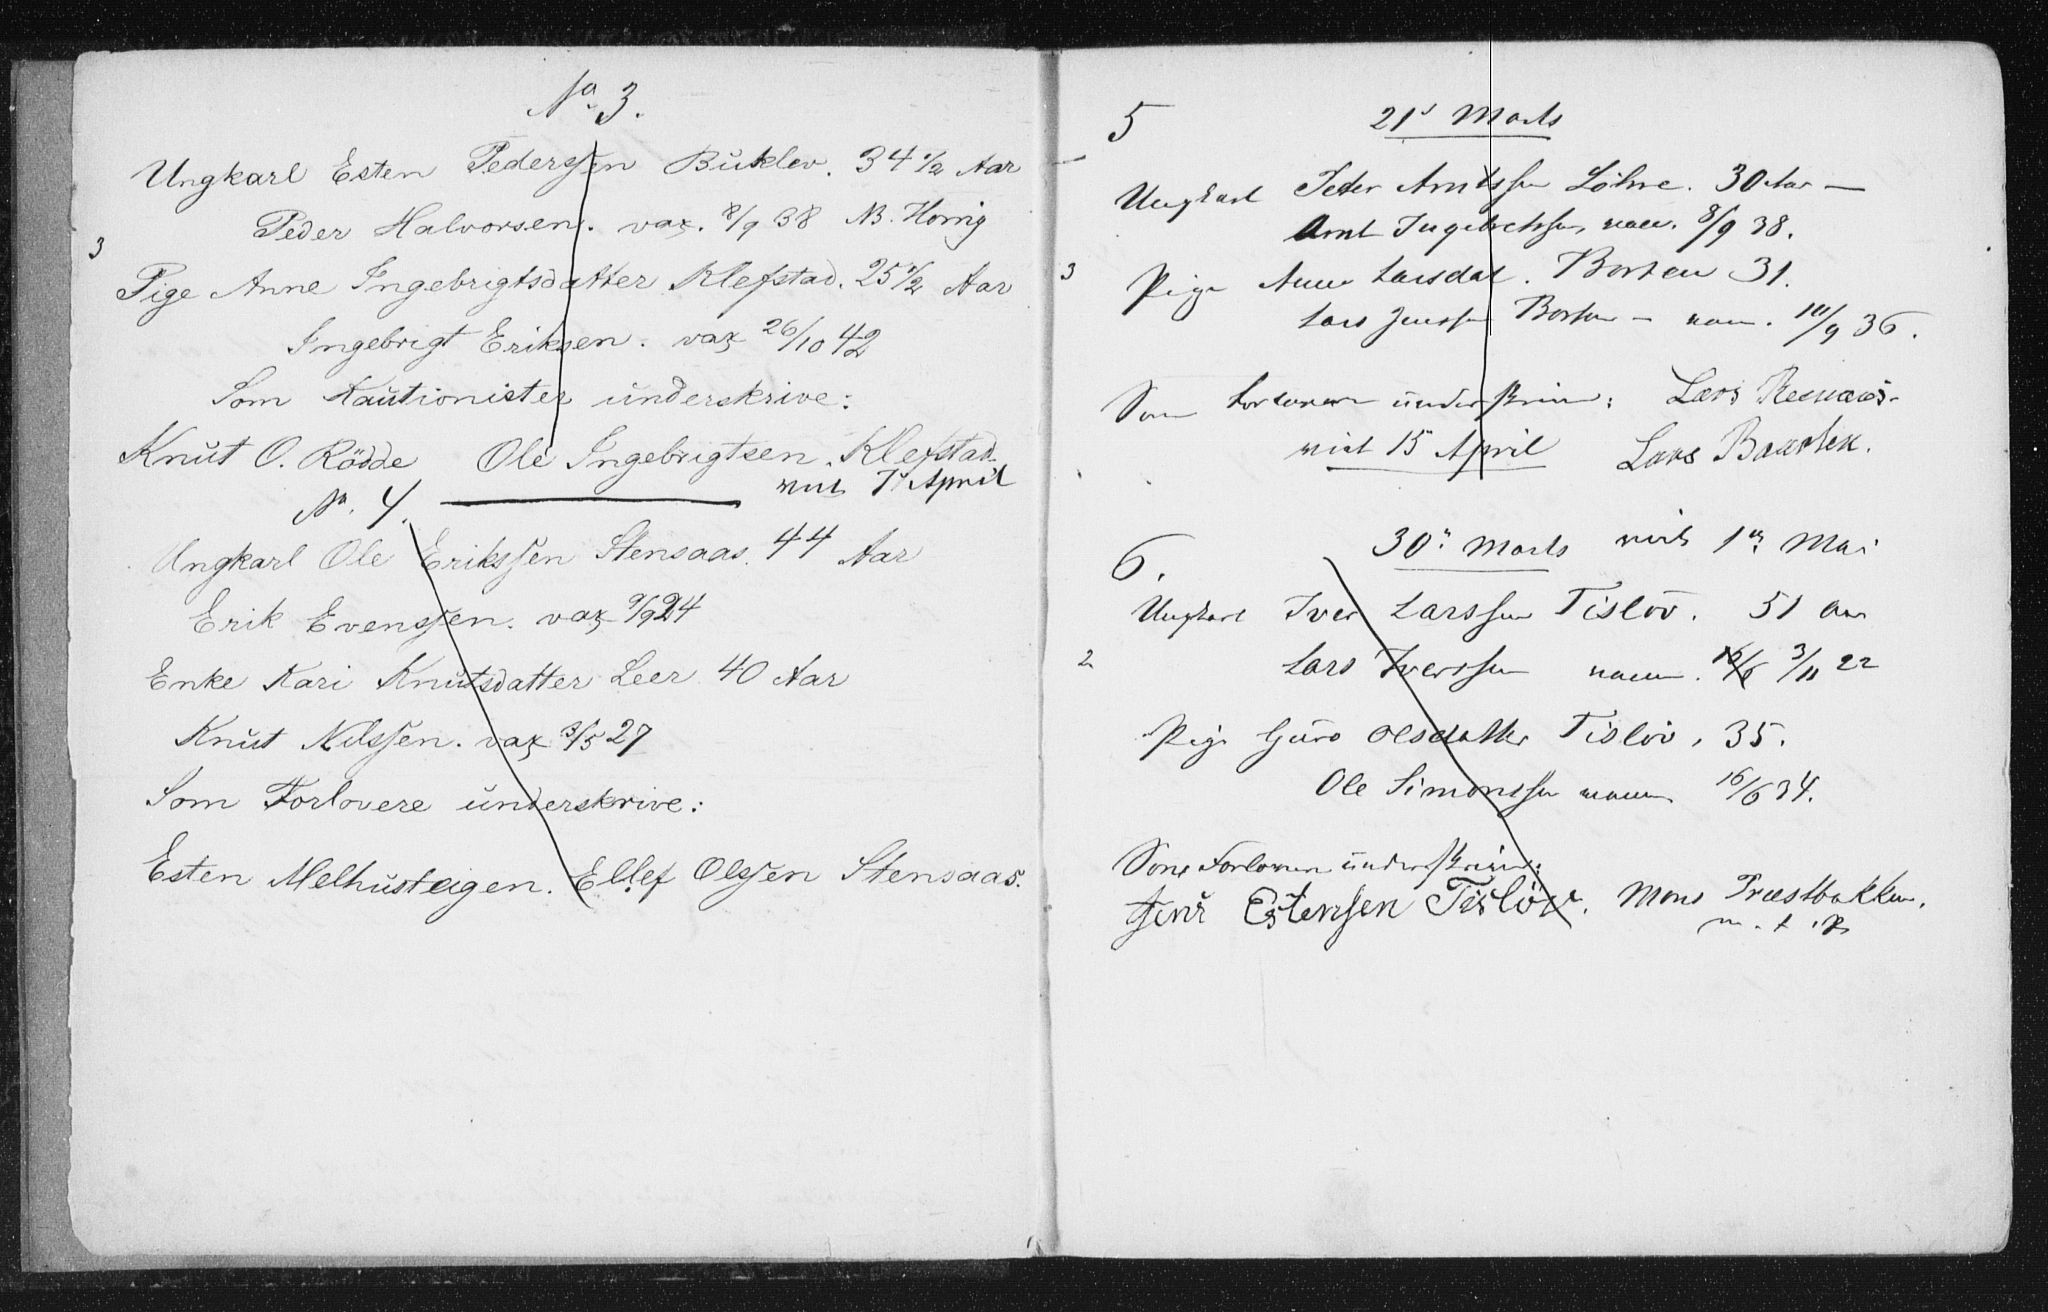 No 3.
Ungkarl Esten Pederssen Buklev. 34 1/2 Aar
Peder Halvorsen. vax. 8/9 38 NB. Horrig
3
Pige Anne Ingebrigtsdatter Klefstad. 25 1/2 Aar
Ingebrigt Eriksen. vax 26/10 42
Som Kautionister underskrive:
Knut O. Rödde Ole Ingebrigtsen Klefstad.
viet 7 April
No. 4.
Ungkarl Ole Erikssen Stensaas. 44 Aar
Erik Evenssen. vax 9/9 24
Enke Kari Knutsdatter Leer 40 Aar
Knut Nilssen. vax 3/5 27
Som Forlovere underskrive:
Esten Melhustrigen. Ellef Olssen Stensaas.
5 21 Marts
Ungkarl Peder Arntssen Löhre. 30 Aar —
Arnt Ingebrektssen, vacc. 8/9 38.
3
Pige Anne Larsdat. Borten 31.
Lars Jenssen Borten — vacc. 10/9 36.
Som Forlovere underskrive: Lars
viet 15 April Lars Baarten.
6. 30 Marts viet 1 Mai
Ungkarl Iver Larssen Tislöv. 51 Aar
2
Lars Iverssen vacc. 16/6 3/11 22
Pige Guro Olsdatter Tislöv, 35.
Ole Simonssen vacc. 16/6 34.
Som Forlovere underskrive:
Jens Estensen Tislöv. Mons Præstbakken.
m. f. P.